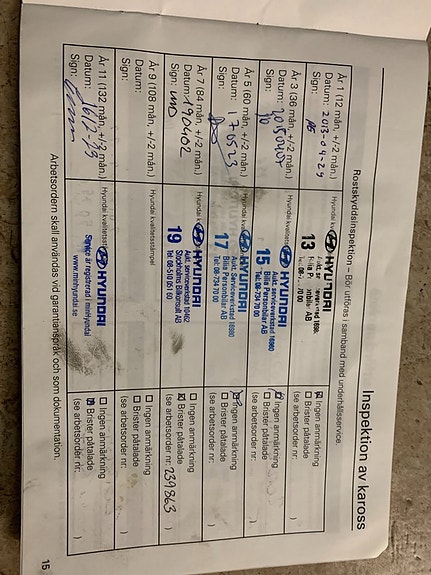 Inspektion av kaross
Rostskyddsinspektion – Bör utföras i samband med underhållsservice
År 1 (12 mån, +/-2 mån.)
Datum: 2013-04-29
Sign:
Hyundai kvalitets
HYUNDAI
13
Bilia Personbilar AB
Ingen anmärkning
Brister påtalade
(se arbetsorder nr: )
År 3 (36 mån, +/-2 mån.)
Datum: 20150407
Sign:
Hyundai kvalitets
HYUNDAI
15
Aukt. Serviceverkstad 16980
Bilia Personbilar AB
Tel. 08-734 70 00
Ingen anmärkning
Brister påtalade
(se arbetsorder nr: )
År 5 (60 mån, +/-2 mån.)
Datum: 170523
Sign:
Hyundai kvalitets
HYUNDAI
17
Aukt. Serviceverkstad 16980
Bilia Personbilar AB
Tel. 08-734 70 00
Ingen anmärkning
Brister påtalade
(se arbetsorder nr: )
År 7 (84 mån, +/-2 mån.)
Datum: 190402
Sign: MD
Hyundai kvalitets
HYUNDAI
19
Aukt. serviceverkstad 10462
Stockholms Bilkonsult AB
Tel: 08-510 051 60
Ingen anmärkning
Brister påtalade
(se arbetsorder nr: 239863 )
År 9 (108 mån, +/-2 mån.)
Datum:
Sign:
Hyundai kvalitetsstämpel
Ingen anmärkning
Brister påtalade
(se arbetsorder nr: )
År 11 (132 mån, +/-2 mån.)
Datum: 16/2-23
Sign:
Hyundai kvalitets
HYUNDAI
Service är registrerad i minHyundai
www.minhyundai.se
Ingen anmärkning
Brister påtalade
(se arbetsorder nr: )
Arbetsordern skall användas vid garantianspråk och som dokumentation.
15